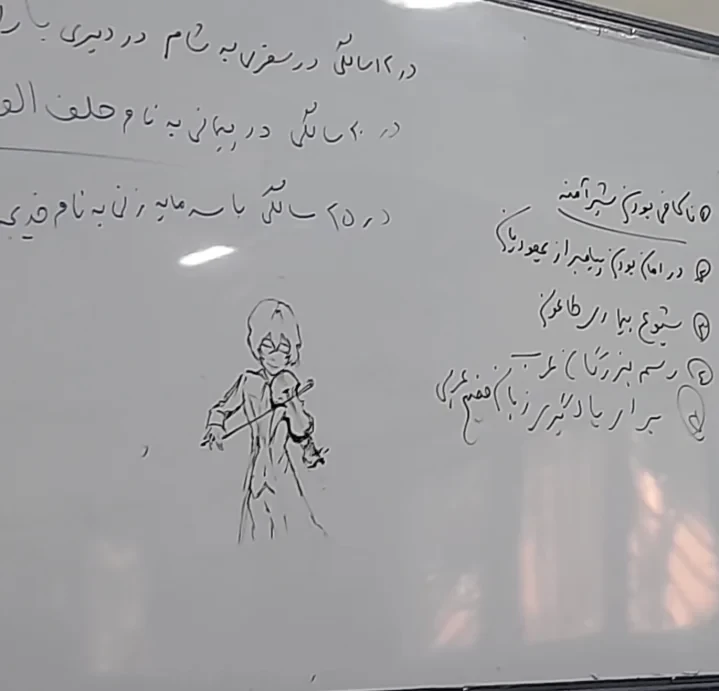 در ۱۲ سالگی در سفری به شام در دیری با را
در ۲۰ سالگی در پیمانی به نام حلف الف
در ۲۵ سالگی با سرمایه زنی به نام خدیج
① ناکافی بودن شیر آمنه
② در امان بودن پیامبر از یهودیان
③ شیوع بیماری طاعون
④ رسم بزرگان عرب
⑤ برای یادگیری زبان فصیح عربی